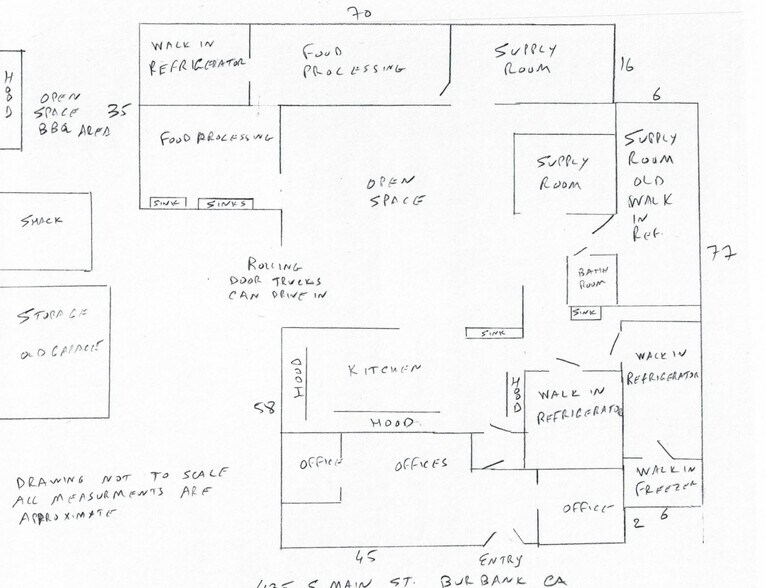 70
WALK IN
REFRIGERATOR
FOOD
PROCESSING
SUPPLY
ROOM
16
HOOD
OPEN
SPACE
BBQ AREA
35
6
FOOD PROCESSING
SINK
SINKS
OPEN
SPACE
SUPPLY
ROOM
SUPPLY
ROOM
OLD
WALK
IN
REF.
77
SHACK
BATH
ROOM
SINK
ROLLING
DOOR TRUCKS
CAN DRIVE IN
STORAGE
OLD GARAGE
SINK
HOOD
KITCHEN
HOOD
HOOD
WALK IN
REFRIGERATOR
WALK IN
REFRIGERATOR
58
OFFICE
OFFICES
WALK IN
FREEZER
OFFICE
2
6
DRAWING NOT TO SCALE
ALL MEASURMENTS ARE
APPROXIMATE
45
ENTRY
435 S MAIN ST. BURBANK CA